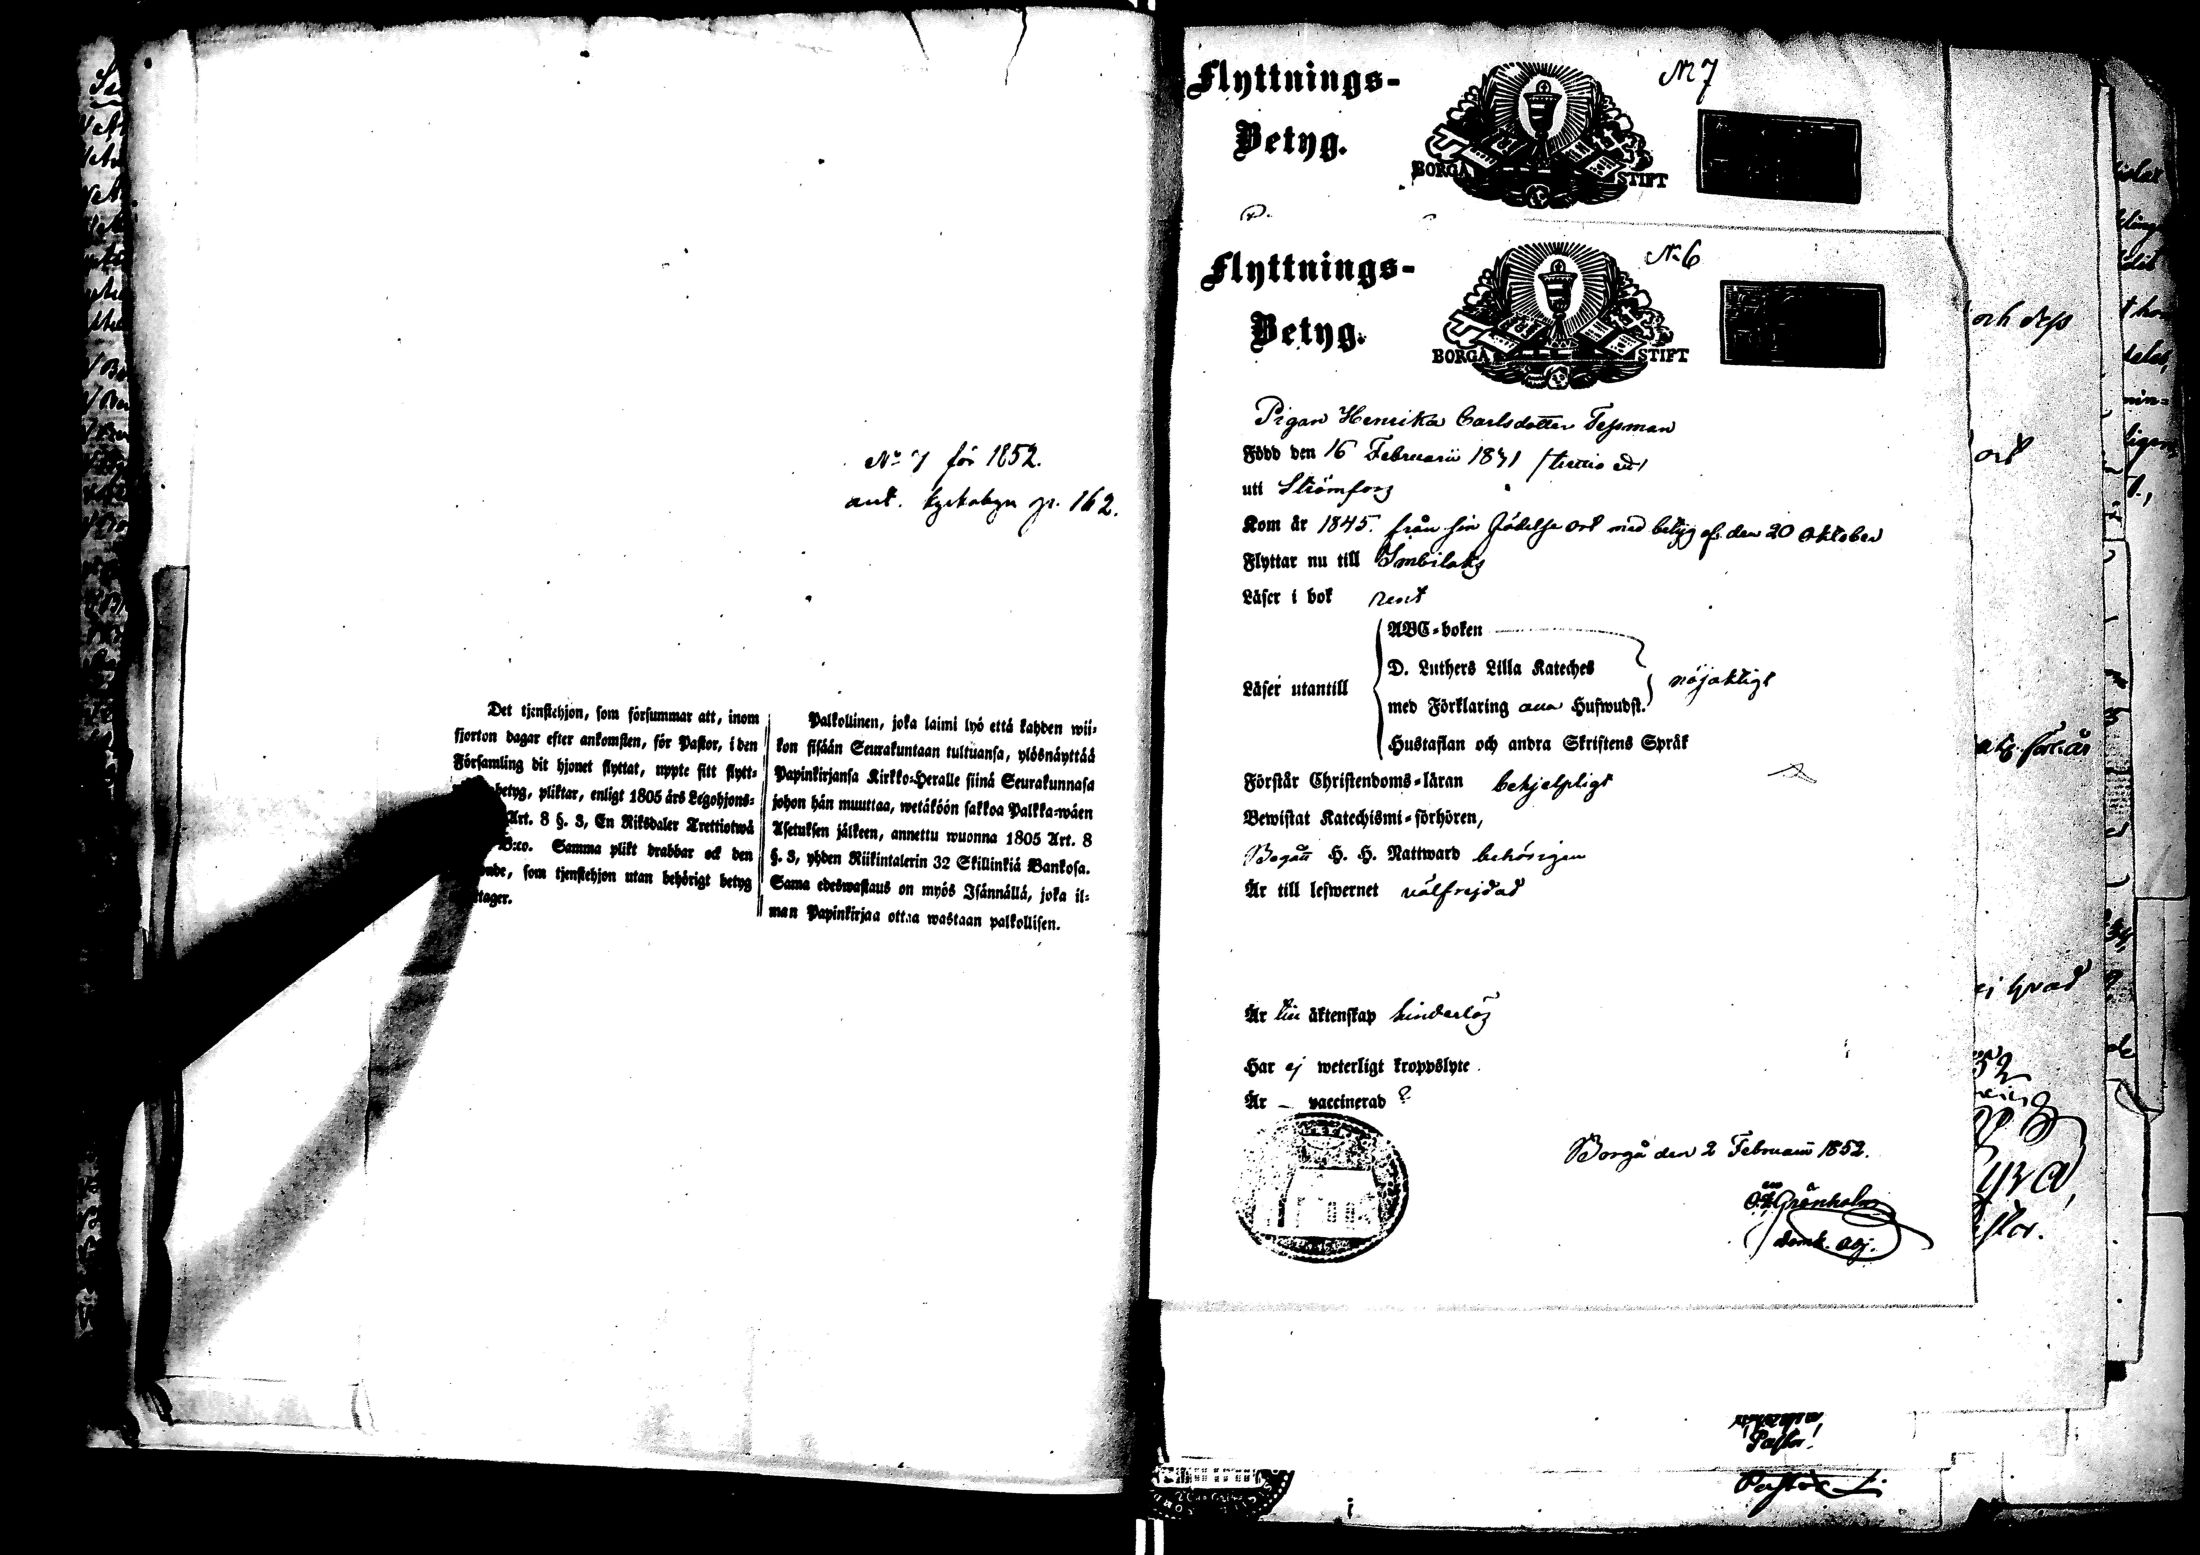 No 7 för 1852.
ant. Kyrkobyn p. 162.
Det tjenstehjon, som försummar att, inom
fjorton dagar efter ankomsten, för Pastor, i den
Församling dit hjonet flyttat, uppte sitt flytt-
betyg, pliktar, enligt 1805 års Legohjons-
Art. 8 §. 3, En Riksdaler Trettiotwå
B:co. Samma plikt drabbar ock den
som tjenstehjon utan behörigt betyg
Palkollinen, joka laimi lyö että kahden wii-
kon sisään Seurakuntaan tultuansa, ylösnäyttää
Papinkirjansa Kirkko-Heralle siinä Seurakunnasa
johon hän muuttaa, wetäköön sakkoa Palkka-wäen
Asetuksen jälkeen, annettu wuonna 1805 Art. 8
§. 3, yhden Riikintalerin 32 Skillinkiä Bankosa.
Sama edeswastaus on myös Isännällä, joka il-
man Papinkirjaa ottaa wastaan palkollisen.
Flyttnings-
Betyg.
BORGÅ STIFT
N 7
Flyttnings-
Betyg.
BORGÅ STIFT
N. 6
Pigan Henrika Carlsdotter Tessman
Född den 16 Februarii 1831
uti Strömfors
Kom år 1845. från sin födelse ort med betyg af den 20 Oktober
Flyttar nu till Imbilaks
Läser i bok rent
Läser utantill
ABC-boken
D. Luthers Lilla Kateches
med Förklaring Hufwudst.
Hustaflan och andra Skriftens Språk
nöjaktigt
Förstår Christendoms-läran behjelpligt
Bewistat Katechismi-förhören,
Begått H. H. Nattward behörigen
Är till lefwernet välfrejdad
Är till äktenskap hinderlös
Har ej weterligt kroppslyte
Är – vaccinerad ?
Borgå den 2 Februarii 1852.
Grönholm
domk. adj.
och dess
ort
Pastor.